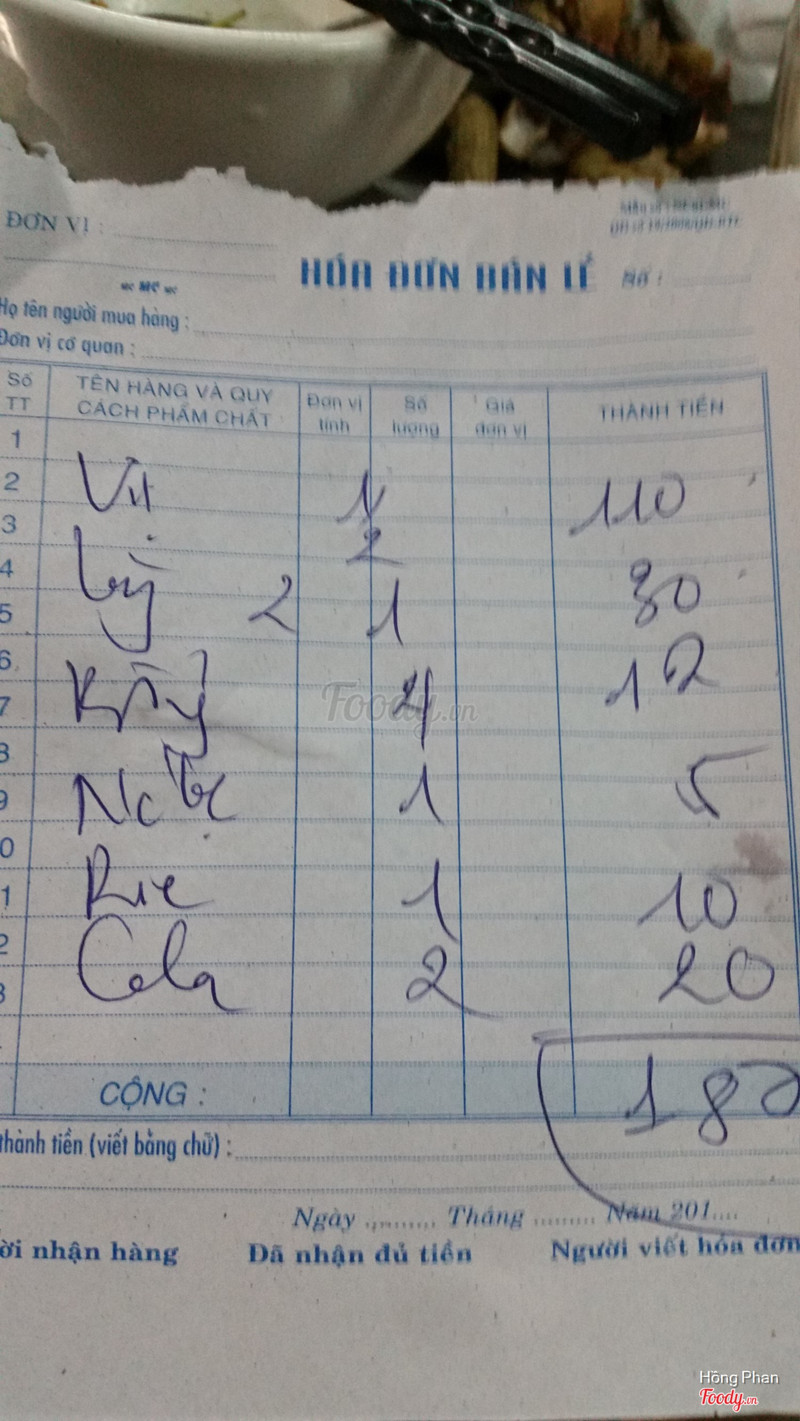 ĐƠN VỊ :
HÓA ĐƠN BÁN LẺ Số :
Họ tên người mua hàng :
Đơn vị cơ quan :
Số TT TÊN HÀNG VÀ QUY CÁCH PHẨM CHẤT Đơn vị tính Số lượng Giá đơn vị THÀNH TIỀN
1
2 Vịt 1 110
3 2
4 30
5 2 1
6
7 4 12
8
9 1 5
0
1 1 10
2 Cola 2 20
3
CỘNG : 187
thành tiền (viết bằng chữ) :
Ngày ......... Tháng ......... Năm 201....
ời nhận hàng Đã nhận đủ tiền Người viết hóa đơn
Foody.vn
Hồng Phan
Foody.vn